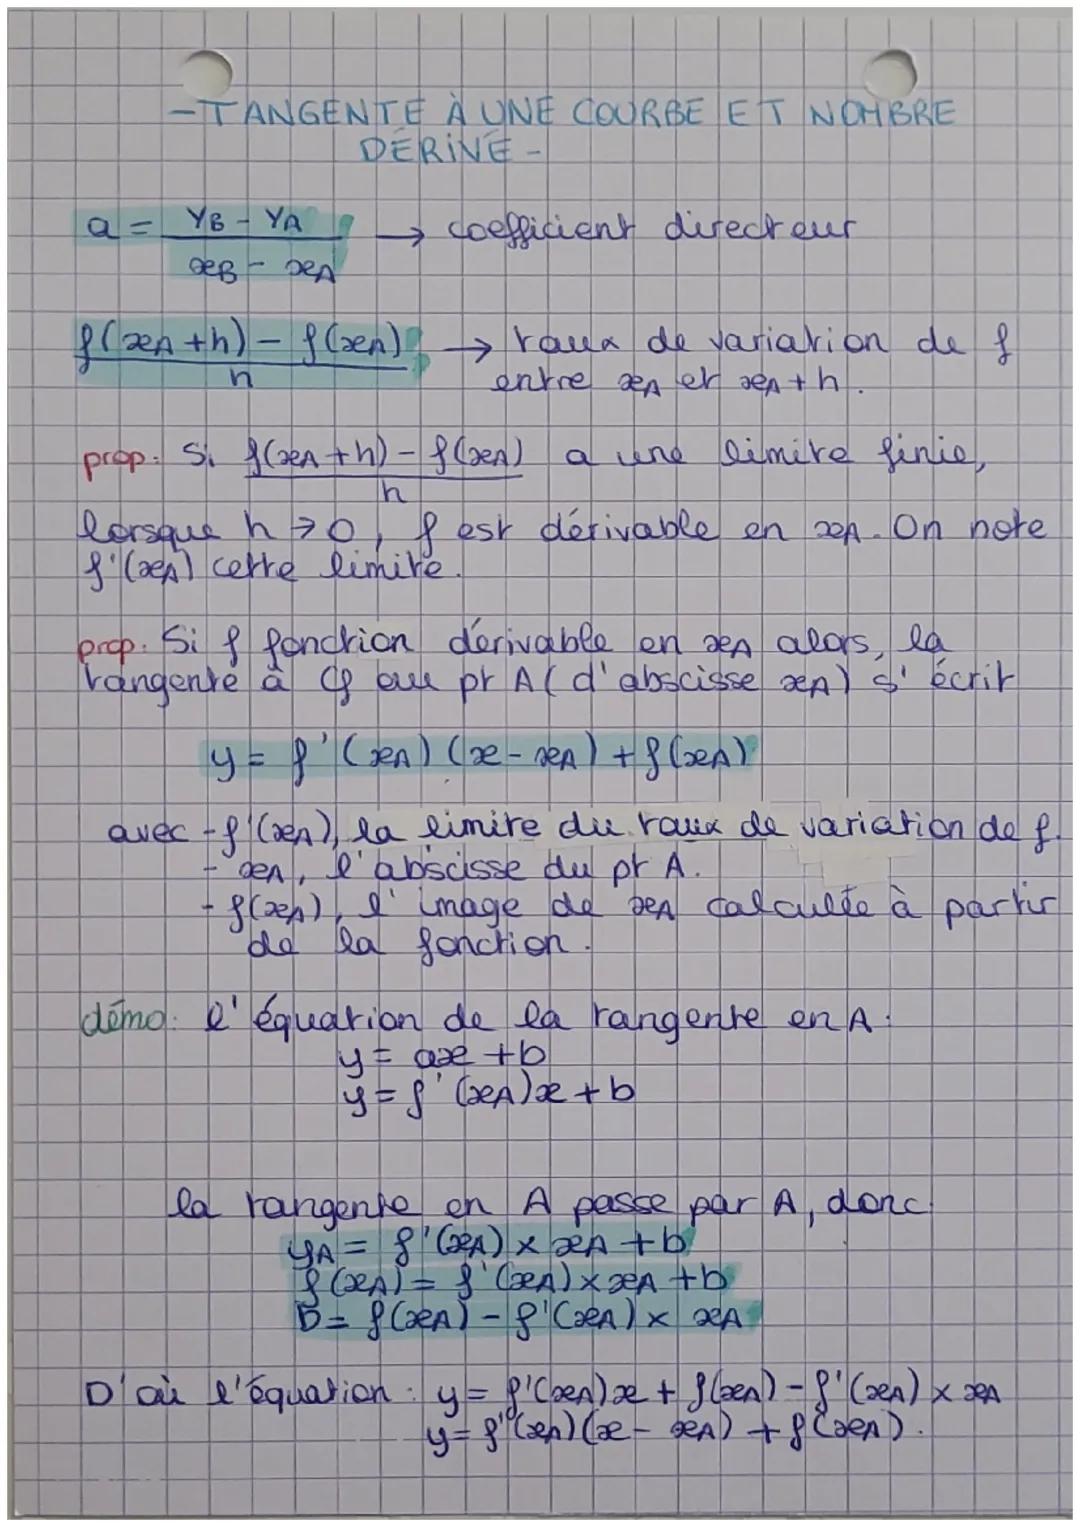 - TANGENTE À UNE COURBE ET NOMBRE
DÉRIVÉ -
a = (yB - yA) / (xB - xA) → coefficient directeur
(f(xA + h) - f(xA)) / h → taux de variation de f
entre xA et xA + h.
prop: Si (f(xA + h) - f(xA)) / h a une limite finie,
lorsque h → 0, f est dérivable en xA. On note
f'(xA) cette limite.
prop: Si f fonction dérivable en xA alors, la
tangente à Cf au pt A (d'abscisse xA) s'écrit
y = f'(xA)(x - xA) + f(xA)
avec - f'(xA), la limite du taux de variation de f.
- xA, l'abscisse du pt A.
- f(xA), l'image de xA calculée à partir
de la fonction.
démo: l'équation de la tangente en A:
y = ax + b
y = f'(xA)x + b
la tangente en A passe par A, donc
yA = f'(xA) × xA + b
f(xA) = f'(xA) × xA + b
b = f(xA) - f'(xA) × xA
D'où l'équation : y = f'(xA)x + f(xA) - f'(xA) × xA
y = f'(xA)(x - xA) + f(xA).